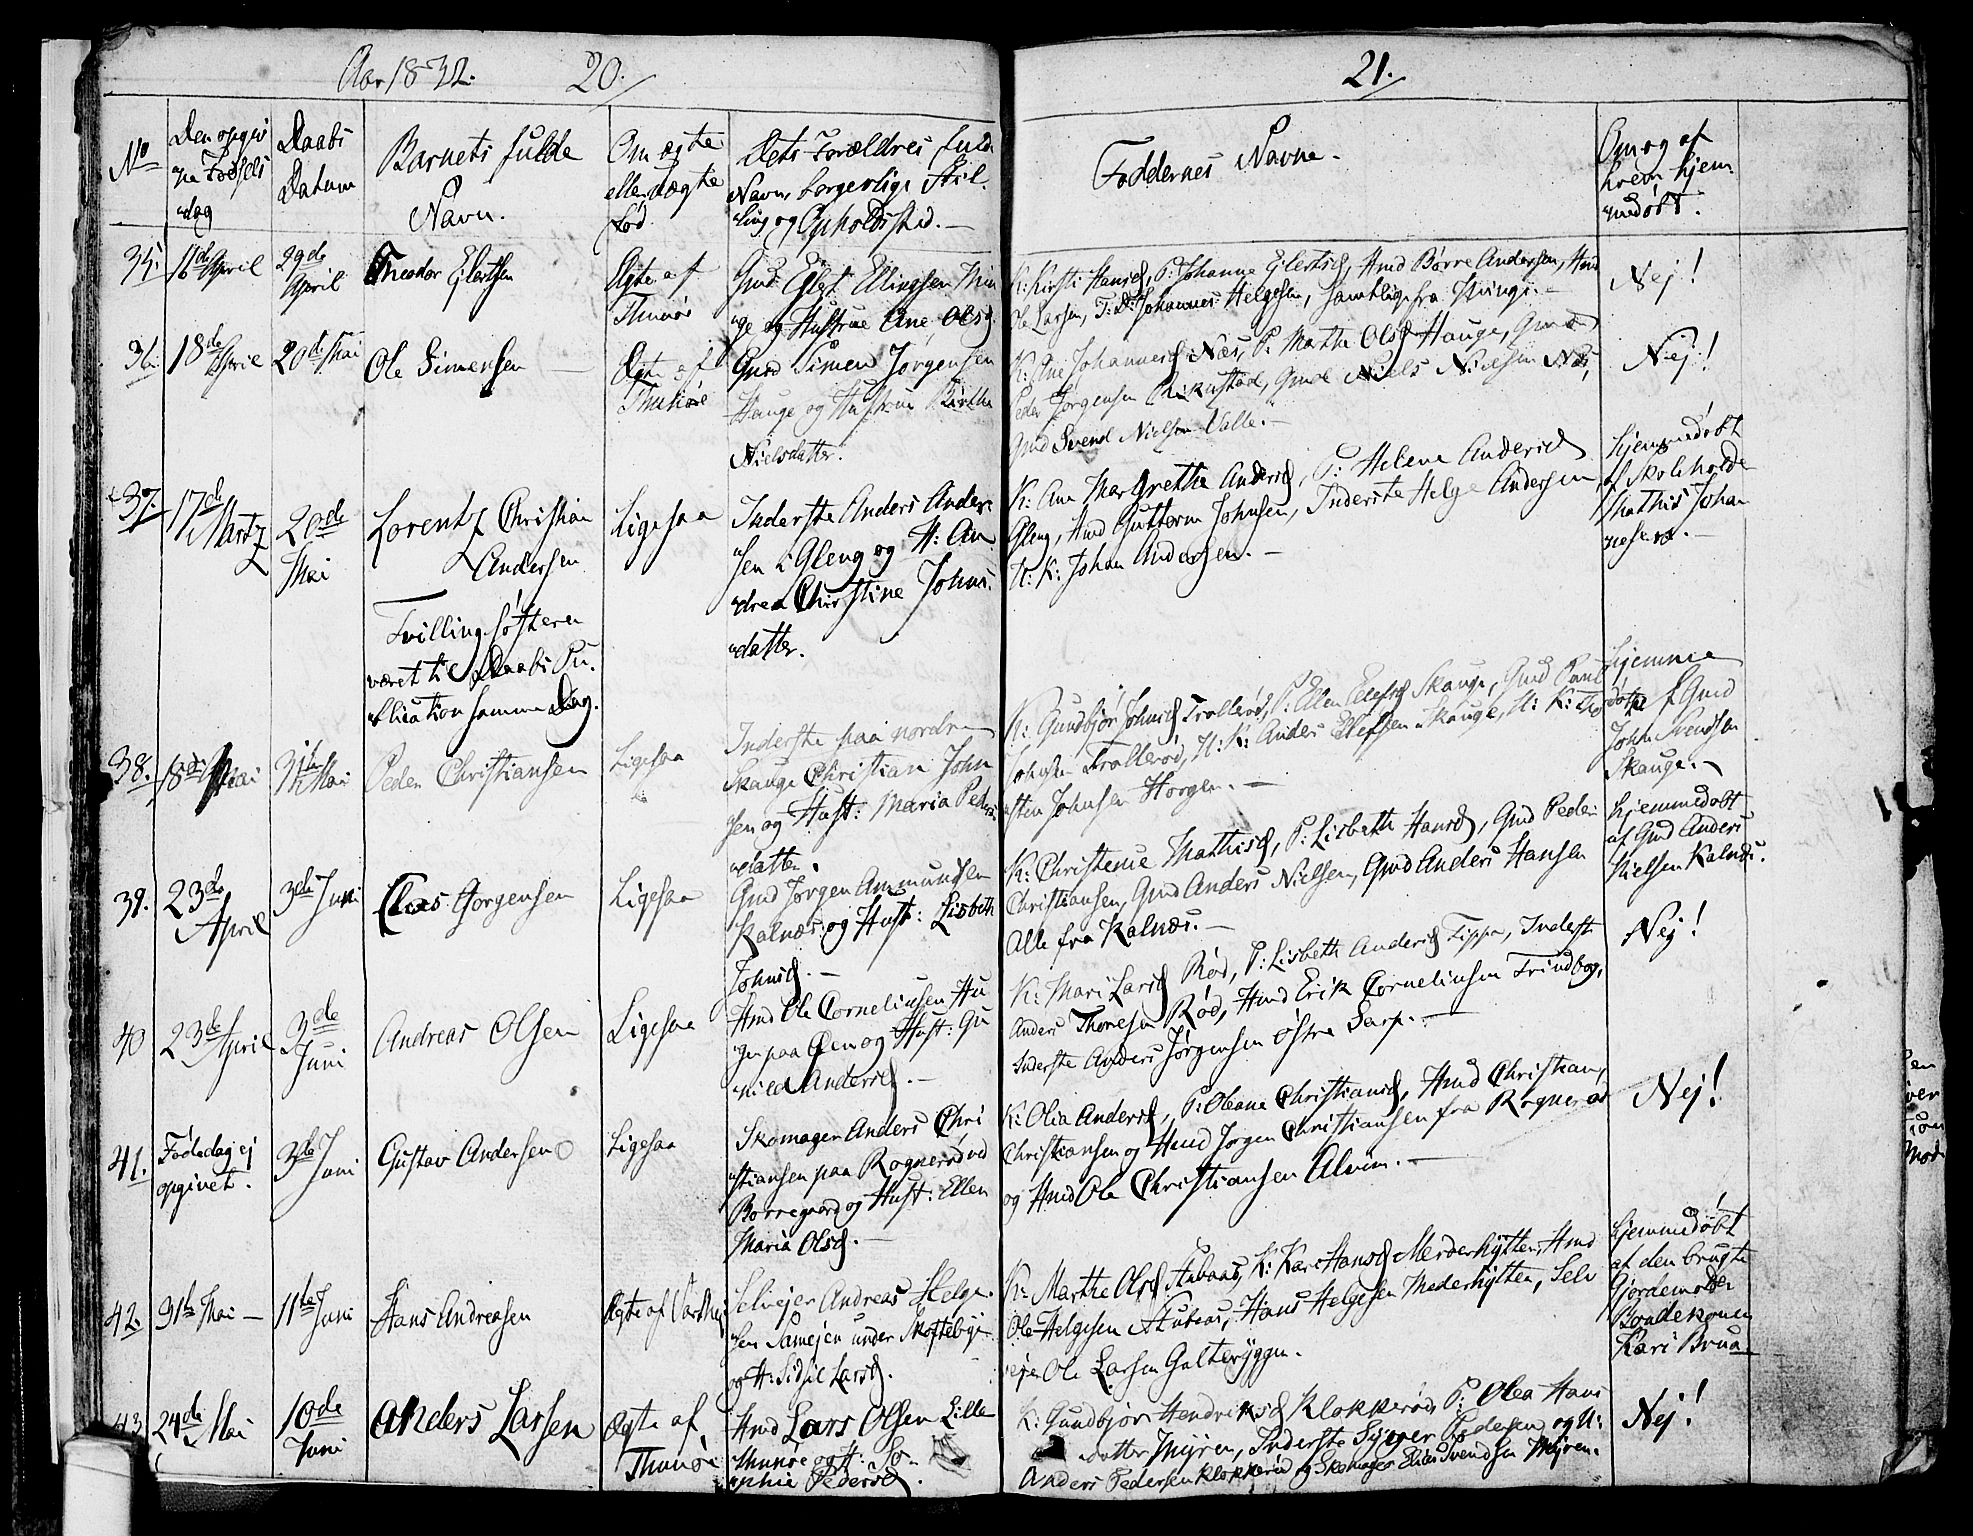 Aar 1832. 20.
21.
No
Den opgiv
ne Fødsels
dag
Daabs
Datum
Barnets fulde
Navn.
Om ægte
eller uægte
fød
Dets Forældres fulde
Navn, borgerlige Stil-
ling og Opholdssted.
Faddernes Navne.
Om og af
hvem hjem-
medøbt.
35. 16de April
29de
April
Theodor Eilertsen
Ægte af
Thunøe
Gmd Eilert Ellingsen
og Hustrue Ane Olsd
K: Kirsti Hansd, P: Johanne Eilertsd, Hmd Børre Andersen, Hmd
Ole Larsen, Johannes Helgesen, samtlige fra
Nej!
36. 18de April
20de Mai
Ole Simensen
Ægte af
Thunøe
Gmd Simen Jørgensen
Hauge og Hustrue Birthe
Nielsdatter.
K: Ane Johannesd Næs, P: Marthe Olsd Hauge, Gmd
Peder Jørgensen Rikustad, Gmd Niels Nielsen Næs,
Gmd Svend Nielsen Valle.
Nej!
37. 17de
Martz
20de
Mai
Lorentz Christian
Andersen
Tvillingsøsteren
været til Daabs Pu-
blication samme Dag.
Ligesaa
Inderste Anders Ander-
sen i Gleng og H: An-
drea Christine Johns-
datter.
K: Ane Margrethe Andersd, P: Helene Andersd
Gleng, Hmd Guttorm Johnsen, Inderste Helge Andersen,
U: K: Johan Andersen.
hjemmedøbt
af Skoleholder
Mathis Johan
nesen.
38. 18de Mai
31te Mai
Peder Christiansen
Ligesaa
Inderste paa nordre
Skauge Christian John
sen og Hust: Maria Peders-
datter.
K: Gundbjør Johnsd Trollerød, P: Ellen Elefsd Skauge, Gmd Paul
Johnsen Trollerød, U: K: Anders Elefsen Skauge, U: K: Tho
sten Johnsen Horgen.
hjemme
døbt af Gmd
John Svendsen
Skauge.
39. 23de
April
3de Juni
Claes Jørgensen
Ligesaa
Gmd Jørgen Ammundsen
Kalnæs og Hust: Lisbeth
Johnsd.
K: Christense Mathisd, P: Lisbeth Hansd, Gmd Peder
Christiansen, Gmd Anders Nielsen, Gmd Anders Hansen
Alle fra Kalnæs.
hjemmedøbt
af Gmd Anders
Nielsen Kalnæs.
40 23de April
3de
Juni
Andreas Olsen
Ligesaa
Hmd Ole Corneliusen Hu
sen paa Gen og Hust: Gu
nild Andersd.
K: Mari Larsd Rød, P: Lisbeth Andersd Tippe, Inderste
Anders Thoresen Rød, Hmd Erik Corneliusen Trindbog,
Inderste Anders Jørgensen østre Sarp.
Nej!
41. Fødedag ej
opgivet.
3de Juni
Gustav Andersen
Ligesaa
Skomager Anders Chri
stiansen paa Rognerød ved
Borregaard og Hust: Ellen
Maria Olsd.
K: Olia Andersd, P: Oleane Christiansd, Hmd Christian
Christiansen og Hmd Jørgen Christiansen fra Rognerød
og Hmd Ole Christiansen Alvim.
Nej!
42. 31te Mai
11te Juni
Hans Andreasen
Ægte af Varthejg
Selvejer Andreas Helge-
sen Ramejen under Skoftebye
og H: Sidsil Larsd.
K: Marthe Olsd Stubaas, K: Kari Hansd Mederhytten, Hmd
Ole Helgesen Stubaas, Hans Helgesen Mederhytten, Selv
ejer Ole Larsen Galteryggen.
hjemmedøbt
af den brugte
Gjordemoder
Boudekonen
Kari Brua
43 24de Mai
10de
Juni
Anders Larsen
Ægte af
Thunøe
Hmd Lars Olsen Lille
Thunøe og H: So-
phia Pedersd.
K: Gundbjør Hendriksd Klokkerød, P: Olea Hans
datter Myren, Inderste Syver Pedersen, og U:
Anders Pedersen Klokkerød og Skomager Elias Svendsen Myren.
Nej!